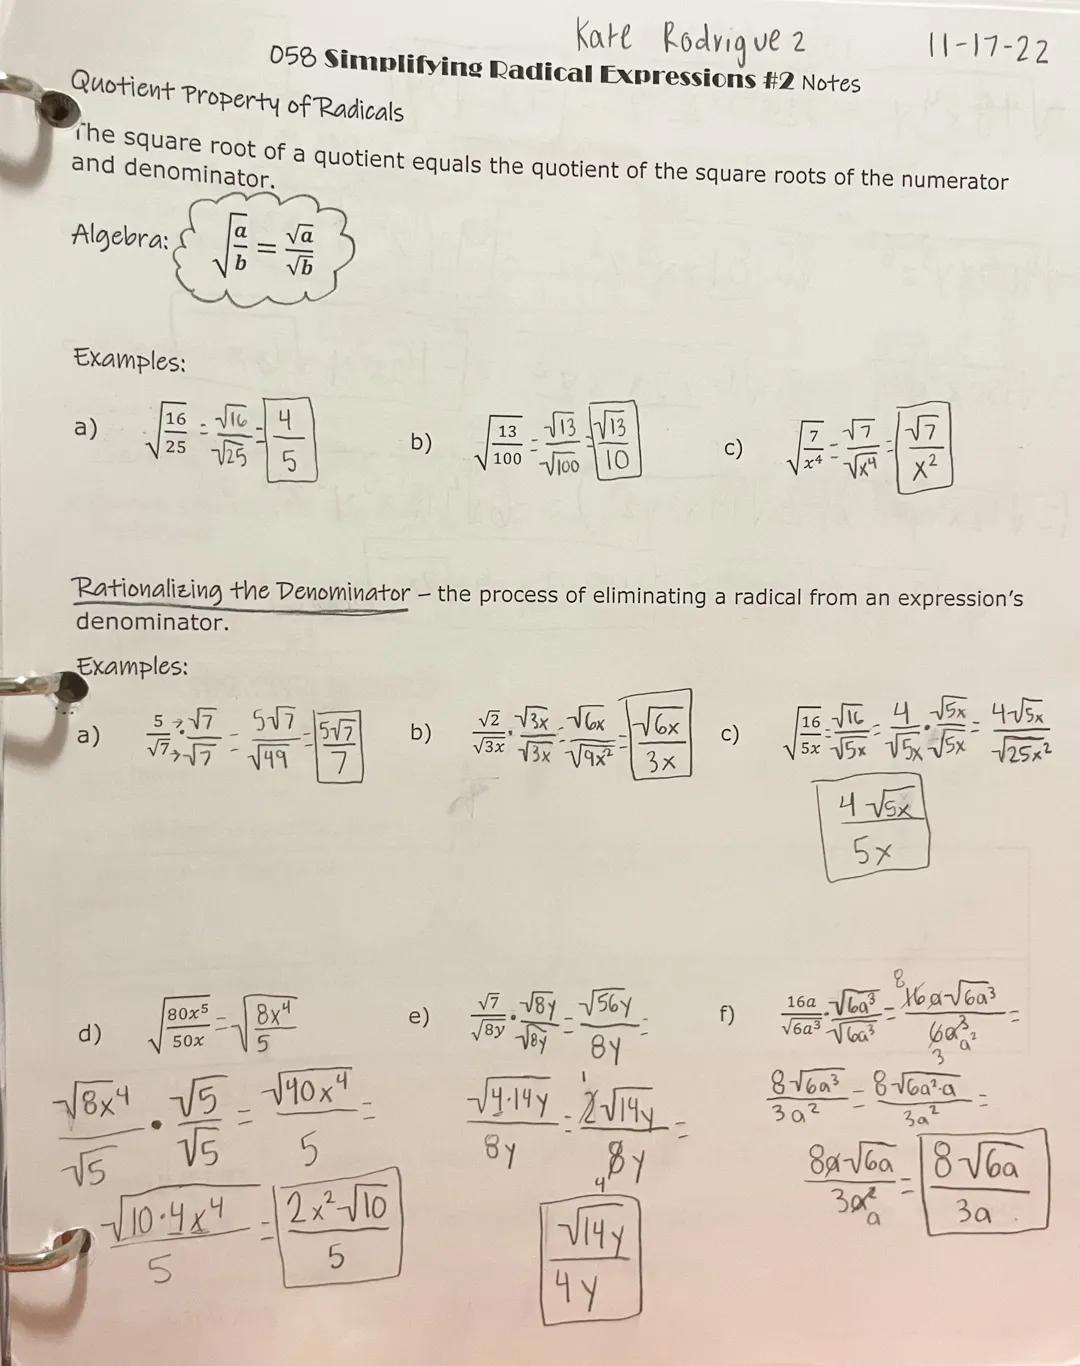 Kate Rodriguez 11-17-22
058 Simplifying Radical Expressions #2 Notes
Quotient Property of Radicals
The square root of a quotient equals the quotient of the square roots of the numerator
and denominator.
Algebra: √(a/b) = √a/√b
Examples:
a) √(16/25) = √16/√25 = 4/5
b) √(13/100) = √13/√100 = √13/10
c) √(7/x⁴) = √7/√x⁴ = √7/x²
Rationalizing the Denominator – the process of eliminating a radical from an expression's
denominator.
Examples:
a) 5/√7 → √7/√7 = 5√7/√49 = 5√7/7
b) √2/√3x · √3x/√3x = √6x/√9x² = √6x/3x
c) √(16/5x) = √16/√5x = 4/√5x · √5x/√5x = 4√5x/√25x²
4√5x/5x
d) √(80x⁵/50x) = √(8x⁴/5)
√8x⁴/√5 · √5/√5 = √40x⁴/5 =
√10·4x⁴/5 = 2x²√10/5
e) √7/√8y · √8y/√8y = √56y/8y =
√4·14y/8y = 2√14y/8y =
1
4
√14y/4y
f) 16a/√6a³ · √6a³/√6a³ = 16a√6a³/6a³ =
8
3 a²
8√6a³/3a² = 8√6a²·a/3a² =
8a√6a/3a² = 8√6a/3a
a